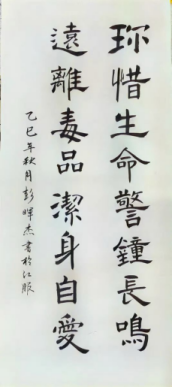 珎惜生命警鐘長鳴
遠離毒品潔身自愛
乙巳年秋月彭暉杰書於江服